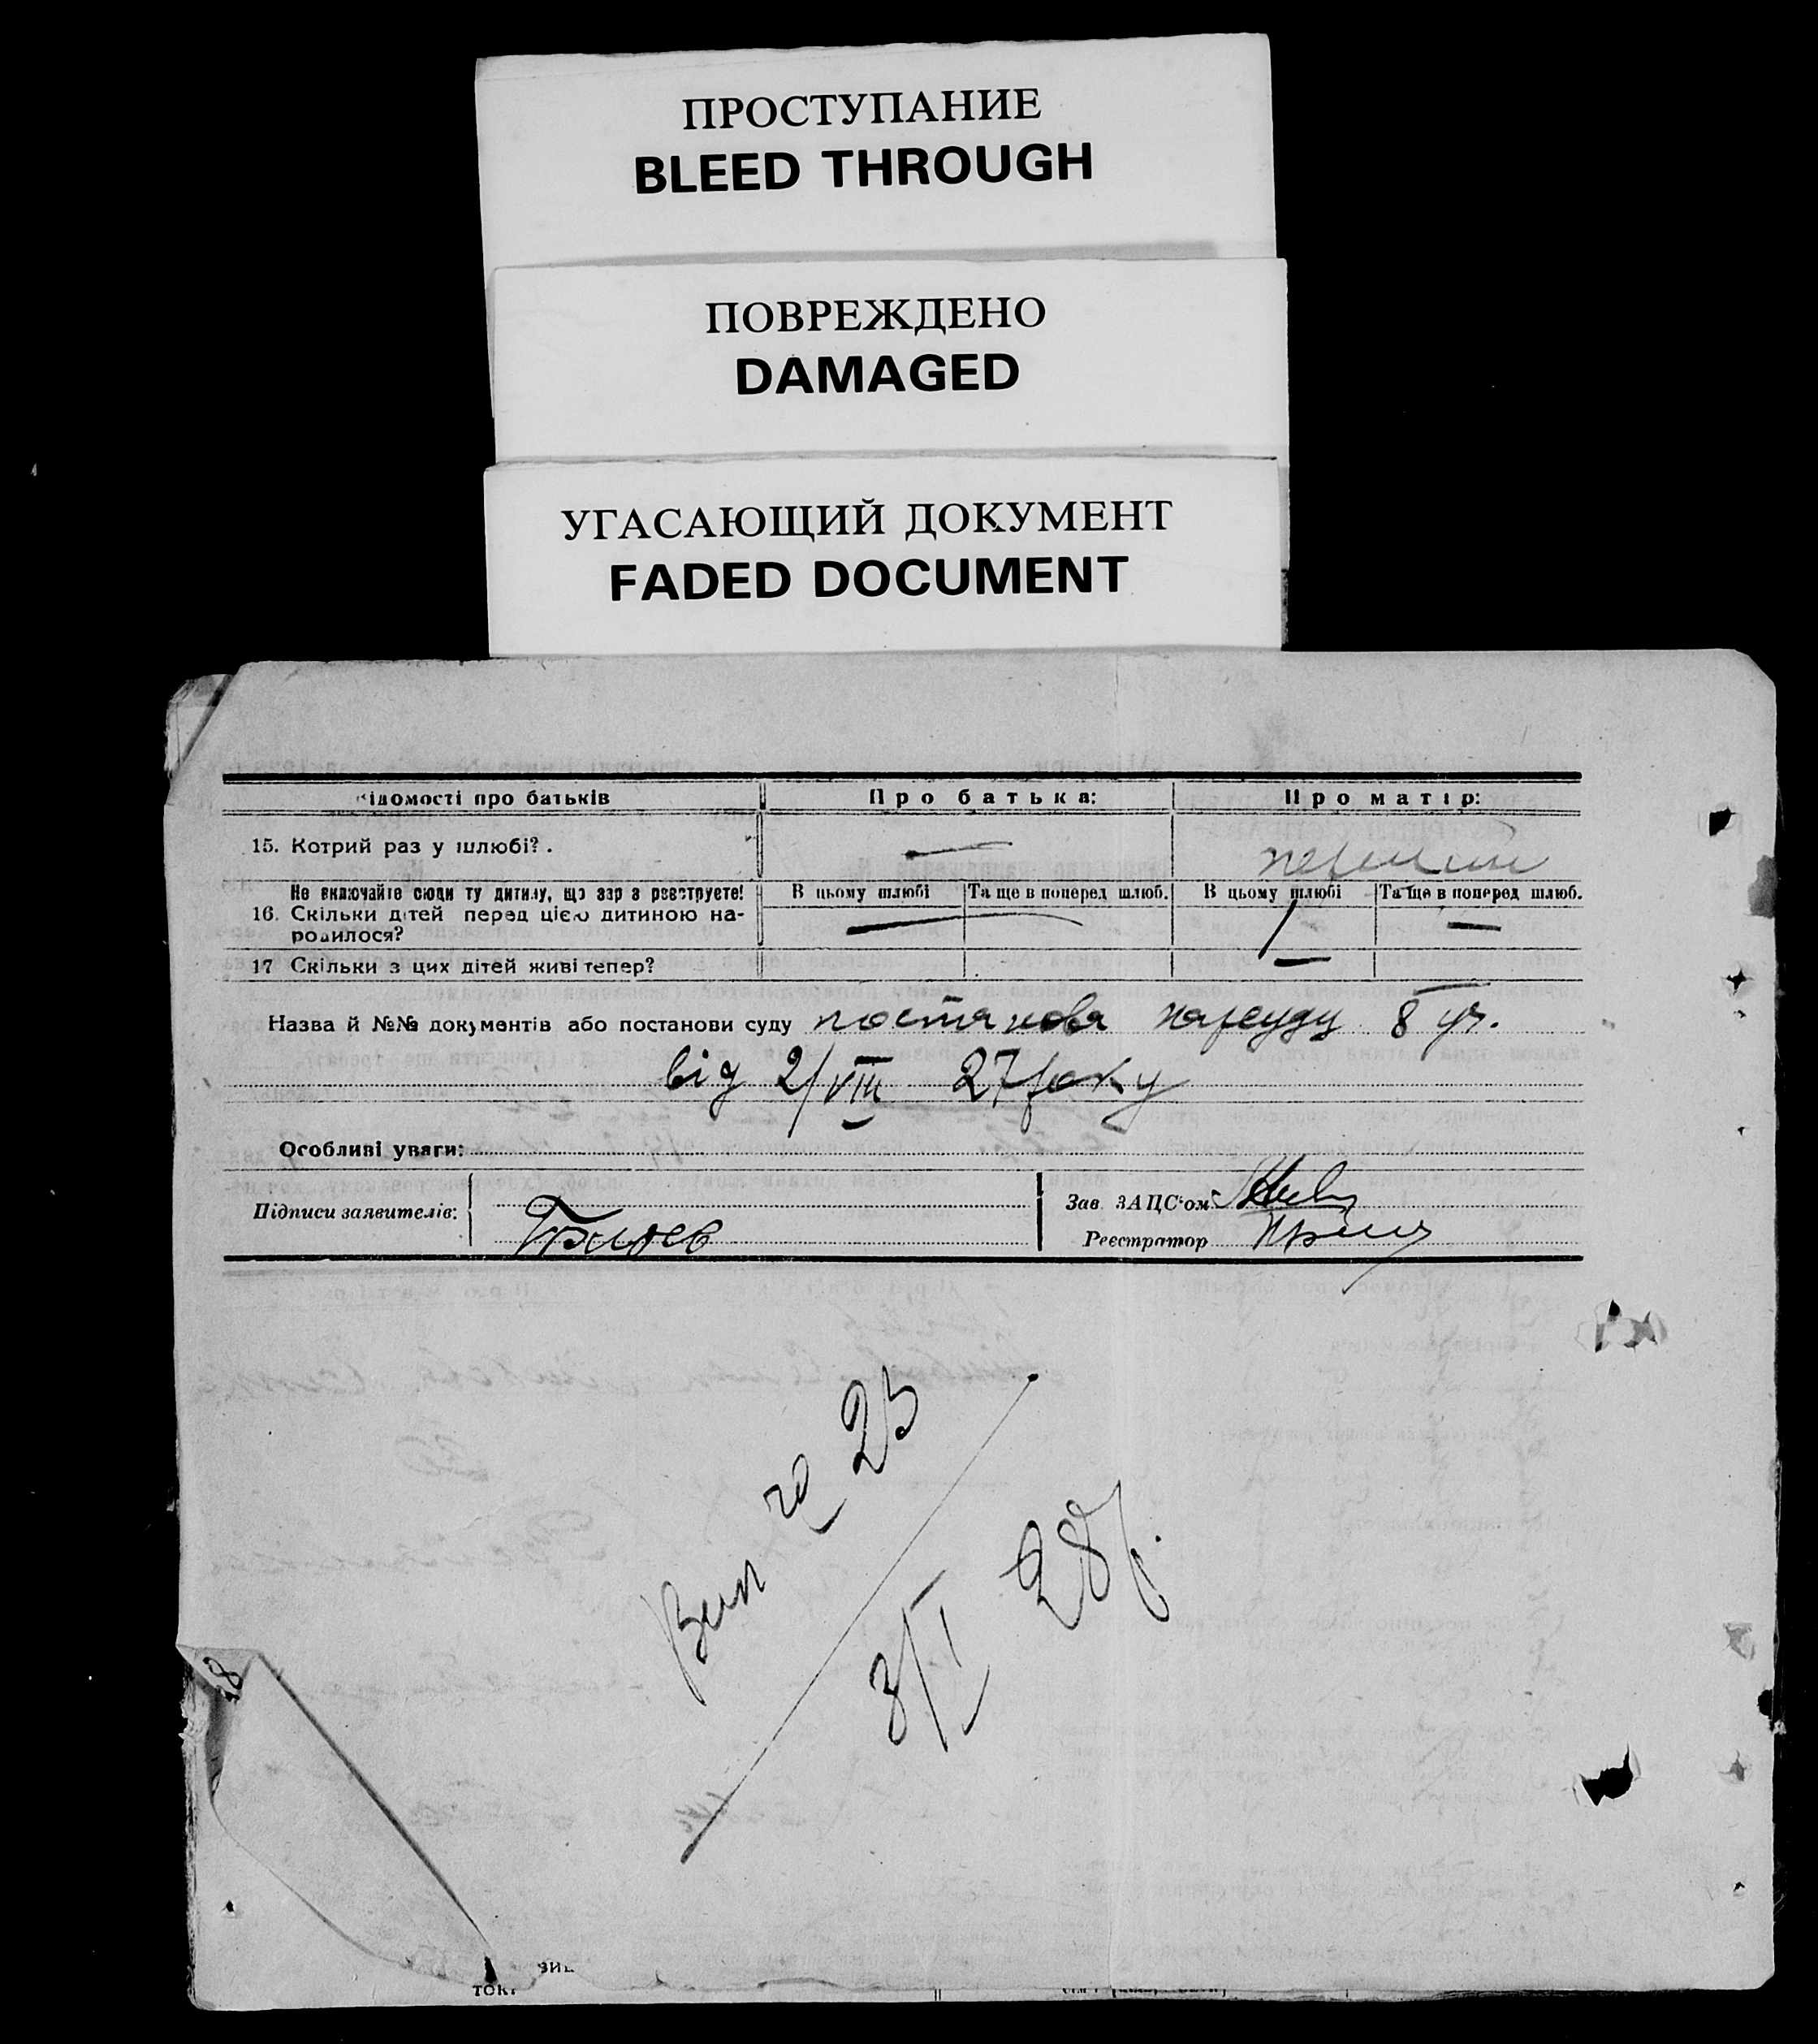 ПРОСТУПАНИЕ
BLEED THROUGH
ПОВРЕЖДЕНО
DAMAGED
УГАСАЮЩИЙ ДОКУМЕНТ
FADED DOCUMENT
ідомості про батьків Про батька: Про матір:
15. Котрий раз у шлюбі? . —
Не включайте сюди ту дитину, що зар з реєструєте! В цьому шлюбі Та ще в поперед шлюб. В цьому шлюбі Та ще в поперед шлюб.
16. Скільки дітей перед цією дитиною на-
родилося? — / —
17 Скільки з цих дітей живі тепер? —
Назва й №№ документів або постанови суду постанова нарсуду 8 уч.
від 2/VIII 27 року
Особливі уваги:
Підписи заявителів: Зав. ЗАЦС'ом
Реєстратор
Вип за 23
3/I 28 р.
8
ЗИ
ТОК